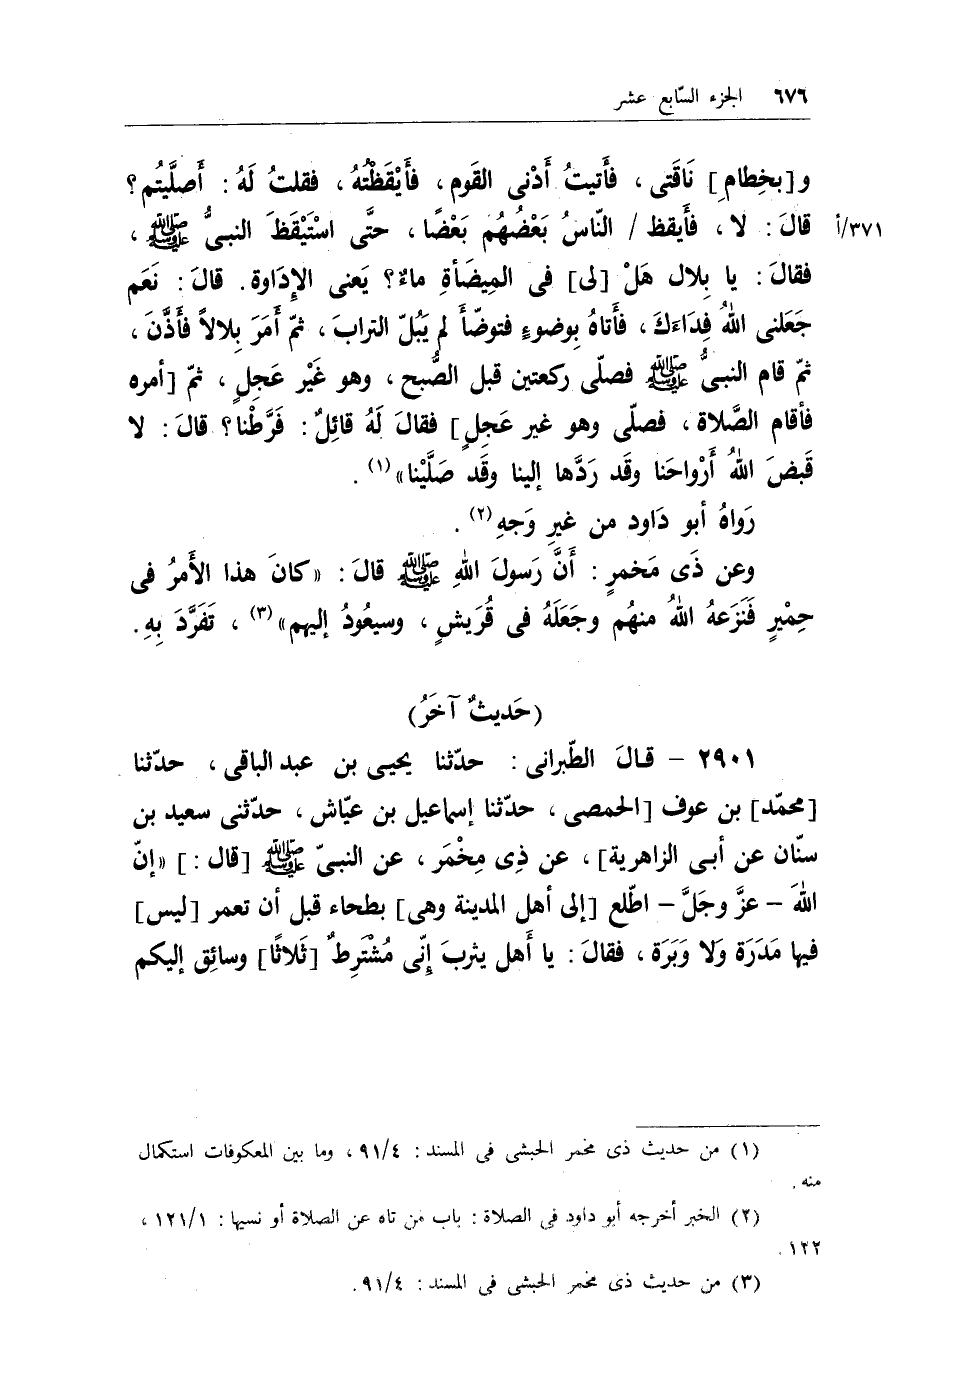 ٦٧٦ الجزء السّابع عشر
و[بخِطامِ] نَاقَتى ، فأَتيتُ أَدْنى القَوم ، فأَيْقَظْتُهُ ، فقلتُ لَهُ : أَصلَّيتُم ؟
٣٧١/أ قالَ : لا ، فأَيقظ / النّاسُ بَعْضُهُم بَعْضًا ، حتَّى اسْتَيْقَظَ النبىُّ ﷺ ،
فقالَ : يا بِلال هَلْ [لى] فى المِيضَأةِ ماءٌ ؟ يَعنى الإِدَاوة . قالَ : نَعَم
جَعَلنى اللهُ فِدَاءَكَ ، فأَتاهُ بِوضوءٍ فتوضّأَ لم يَبُلّ الترابَ ، ثمّ أَمَرَ بِلالاً فأَذَّنَ ،
ثمّ قام النبىُّ ﷺ فصلّى ركعتين قبل الصُّبح ، وهو غَيْر عَجِلٍ ، ثمّ [أمره
فأقام الصَّلاة ، فصلّى وهو غير عَجِلٍ] فقالَ لَهُ قائِلٌ : فَرَّطْنا ؟ قالَ : لا
قَبضَ اللهُ أَرْواحَنا وقَد رَدَّها إلينا وقَد صَلَّيْنا»(١) .
رَواهُ أبو دَاود من غيرِ وَجهِ(٢) .
وعن ذَى مَخمرٍ : أَنَّ رَسولَ اللهِ ﷺ قالَ : «كانَ هذا الأَمرُ فى
حِمْيرٍ فَنَزَعهُ اللهُ منهُم وجَعَلَهُ فى قُرَيشٍ ، وسيعُودُ إليهم»(٣) ، تَفَرَّدَ بِهِ .
(حَديثٌ آخَرُ)
٢٩٠١ – قالَ الطّبرانى : حدّثنا يحيـى بن عبد الباقى ، حدّثنا
[محمّد] بن عوف [الحمصى ، حدّثنا إسماعيل بن عيّاش ، حدّثنى سعيد بن
سنّان عن أبـى الزاهرية] ، عن ذِى مِخْمَر ، عن النبىّ ﷺ [قال :] «إنّ
اللهَ – عزَّ وجَلَّ – اطّلع [إلى أهل المدينة وهى] بطحاء قبل أن تعمر [ليس]
فيها مَدَرَة وَلا وَبَرَة ، فقالَ : يا أَهل يثربَ إِنّى مُشْتَرِطٌ [ثَلاثًا] وسائِق إليكم
(١) من حديث ذى مخمر الحبشى فى المسند : ٩١/٤ ، وما بين المعكوفات استكمال
منه .
(٢) الخبر أخرجه أبو داود فى الصلاة : باب من تاه عن الصلاة أو نسيها : ١٢١/١ ،
١٢٢ .
(٣) من حديث ذى مخمر الحبشى فى المسند : ٩١/٤ .